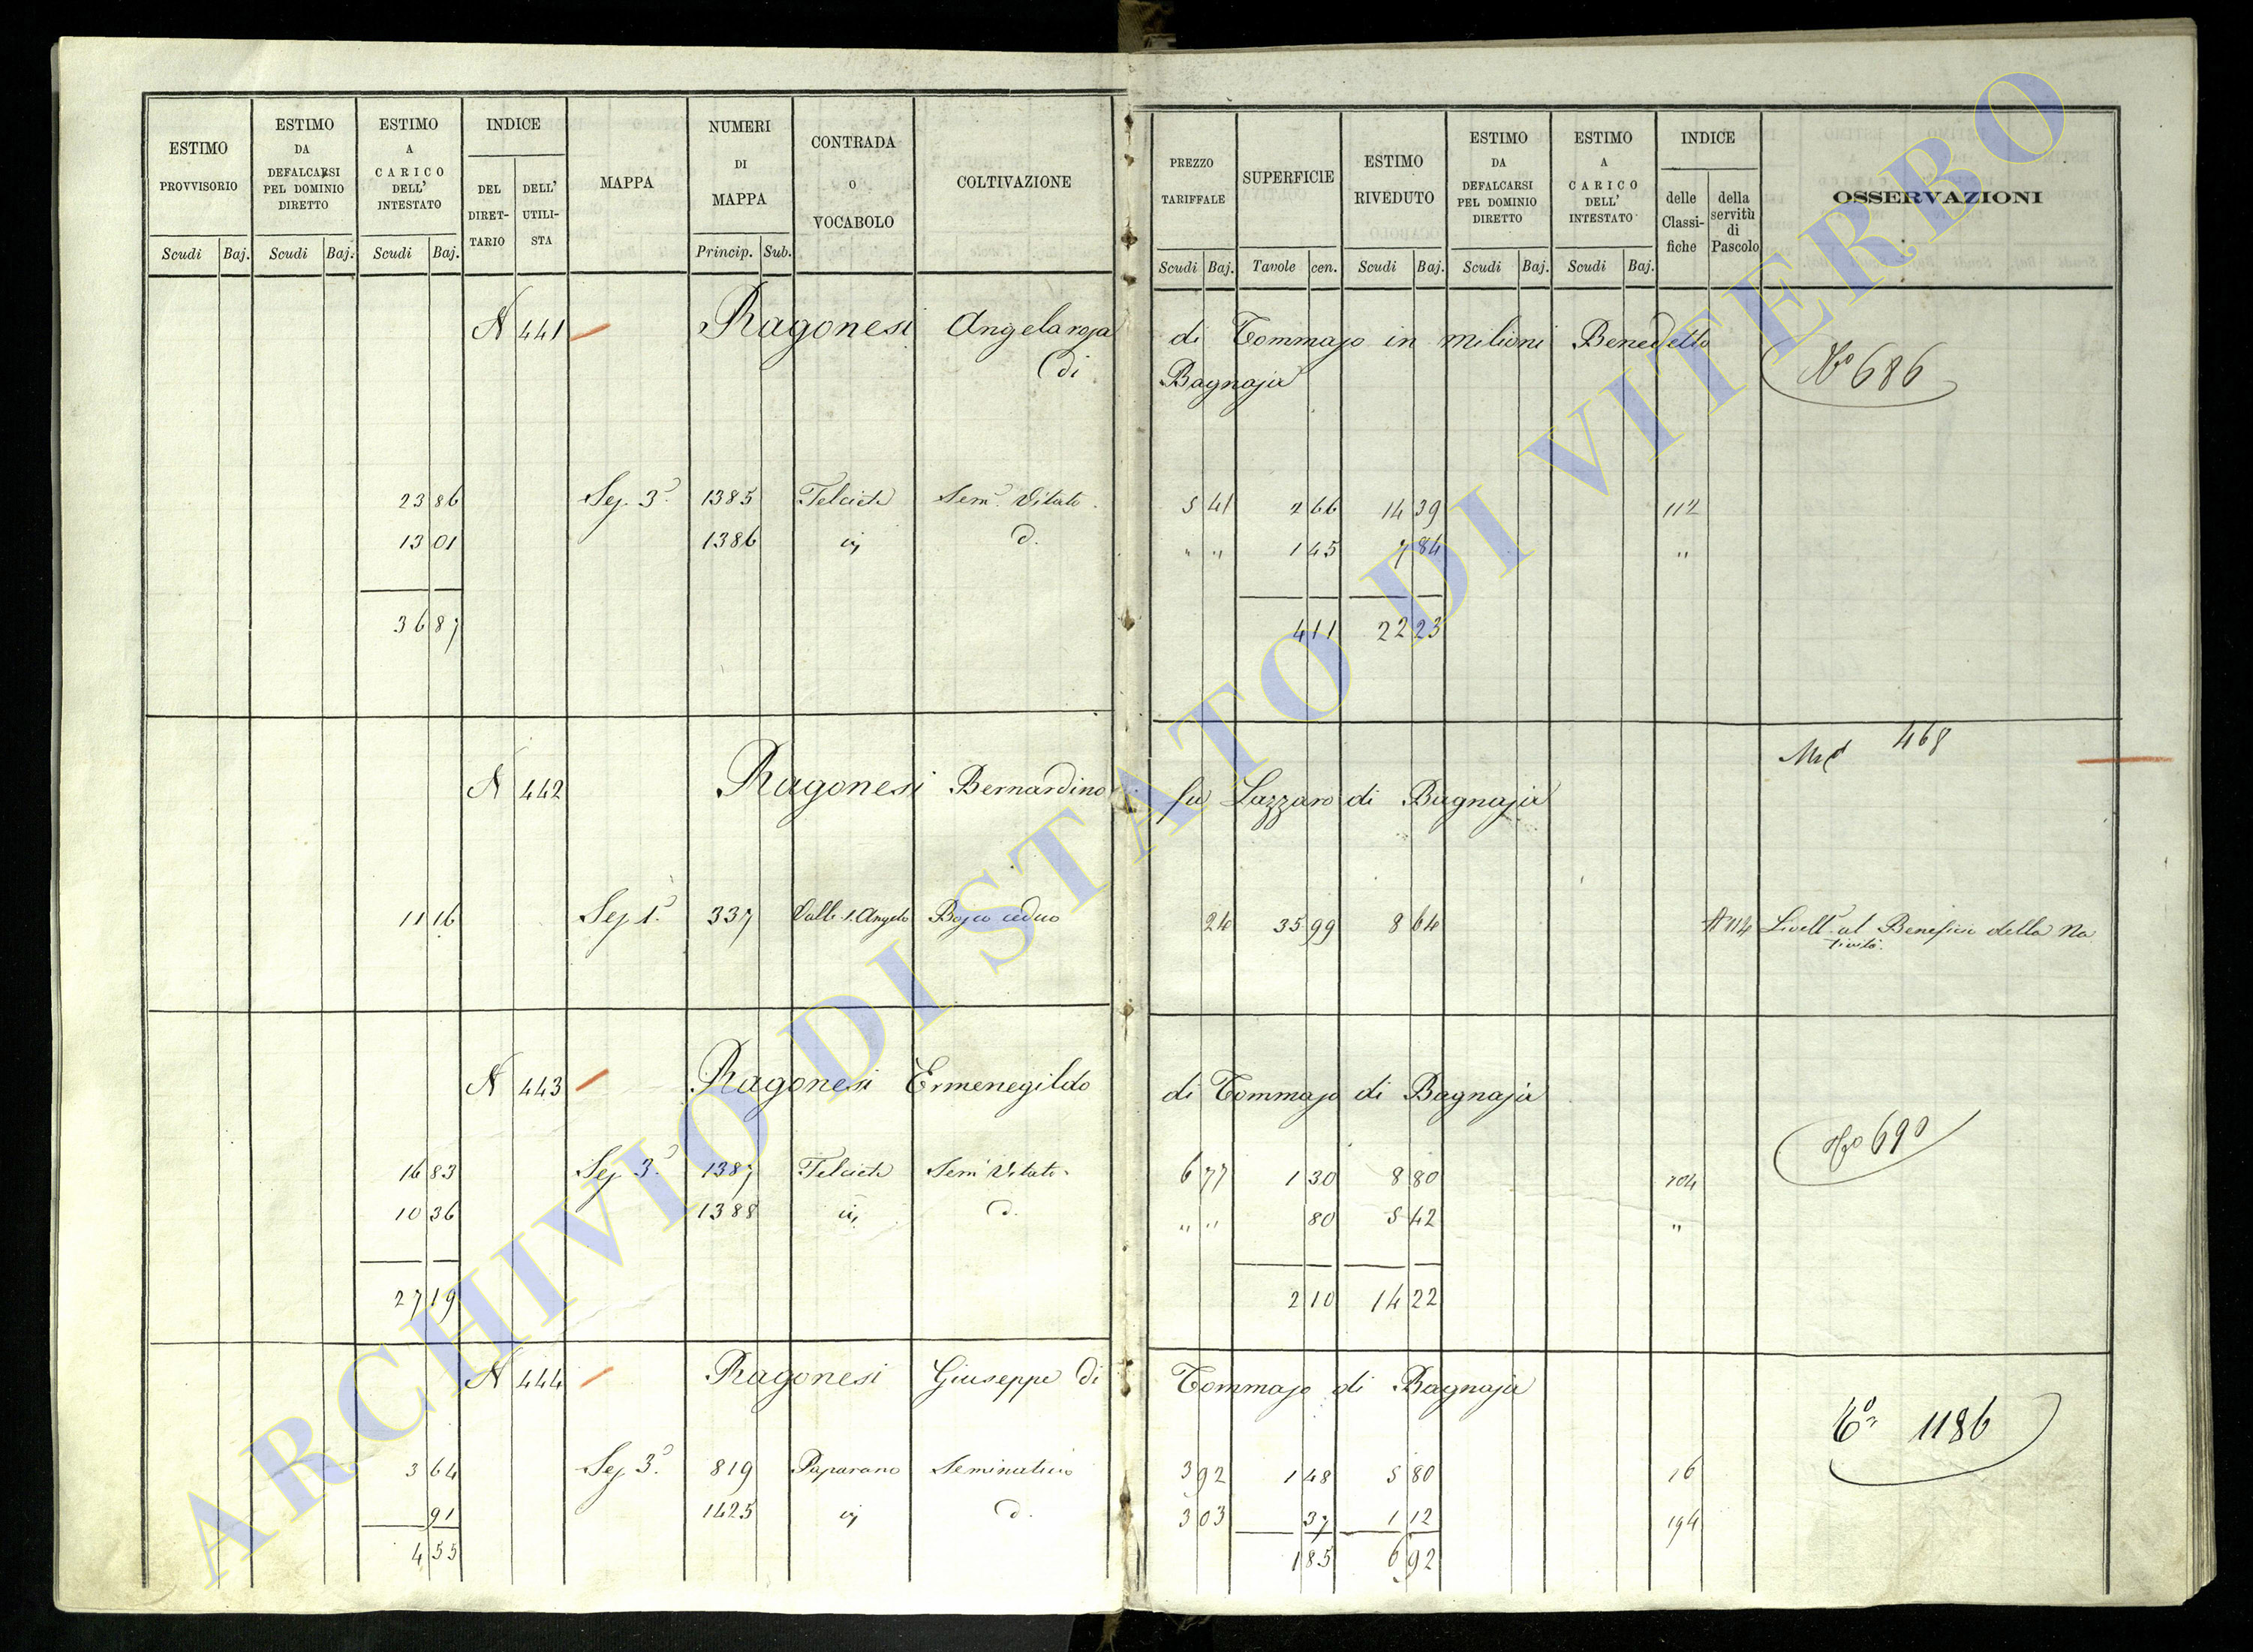 ESTIMO PROVVISORIO
ESTIMO DA DEFALCARSI PEL DOMINIO DIRETTO
ESTIMO A CARICO DELL' INTESTATO
INDICE
DEL DIRETTARIO
DELL' UTILISTA
MAPPA
NUMERI DI MAPPA
CONTRADA O VOCABOLO
COLTIVAZIONE
PREZZO TARIFFALE
SUPERFICIE
ESTIMO RIVEDUTO
ESTIMO DA DEFALCARSI PEL DOMINIO DIRETTO
ESTIMO A CARICO DELL' INTESTATO
INDICE
delle Classifiche
della servitù di Pascolo
OSSERVAZIONI
Scudi Baj. Scudi Baj. Scudi Baj. Princip. Sub. Scudi Baj. Tavole cen. Scudi Baj. Scudi Baj. Scudi Baj.
N 441 Ragonesi Angelarosa di Tommaso in Milioni Benedetto
di Bagnaja
No 686
23 86 Sez. 3a 1385 Sem. Vitato 5 41 2 66 14 39 112
13 01 1386 d. " " 1 45 7 84 "
36 87 4 11 22 23
468
N 442 Ragonesi Bernardino fu Lazzaro di Bagnaja
11 16 Sez. 1a 337 Valle S. Angelo Bosco ceduo 24 35 99 8 64 A 114 Livell. al Beneficio della Na
tività.
N 443 Ragonesi Ermenegildo di Tommaso di Bagnaja
No 690
16 83 Sez. 3a 1387 Sem. Vitato 6 77 1 30 8 80 104
10 36 1388 d. " " 80 5 42 "
27 19 2 10 14 22
N 444 Ragonesi Giuseppe di Tommaso di Bagnaja
1186
3 64 Sez. 3a 819 Paparano Seminativo 3 92 1 48 5 80 16
91 1425 d. 3 03 37 1 12 194
4 55 1 85 6 92
ARCHIVIO DI STATO DI VITERBO